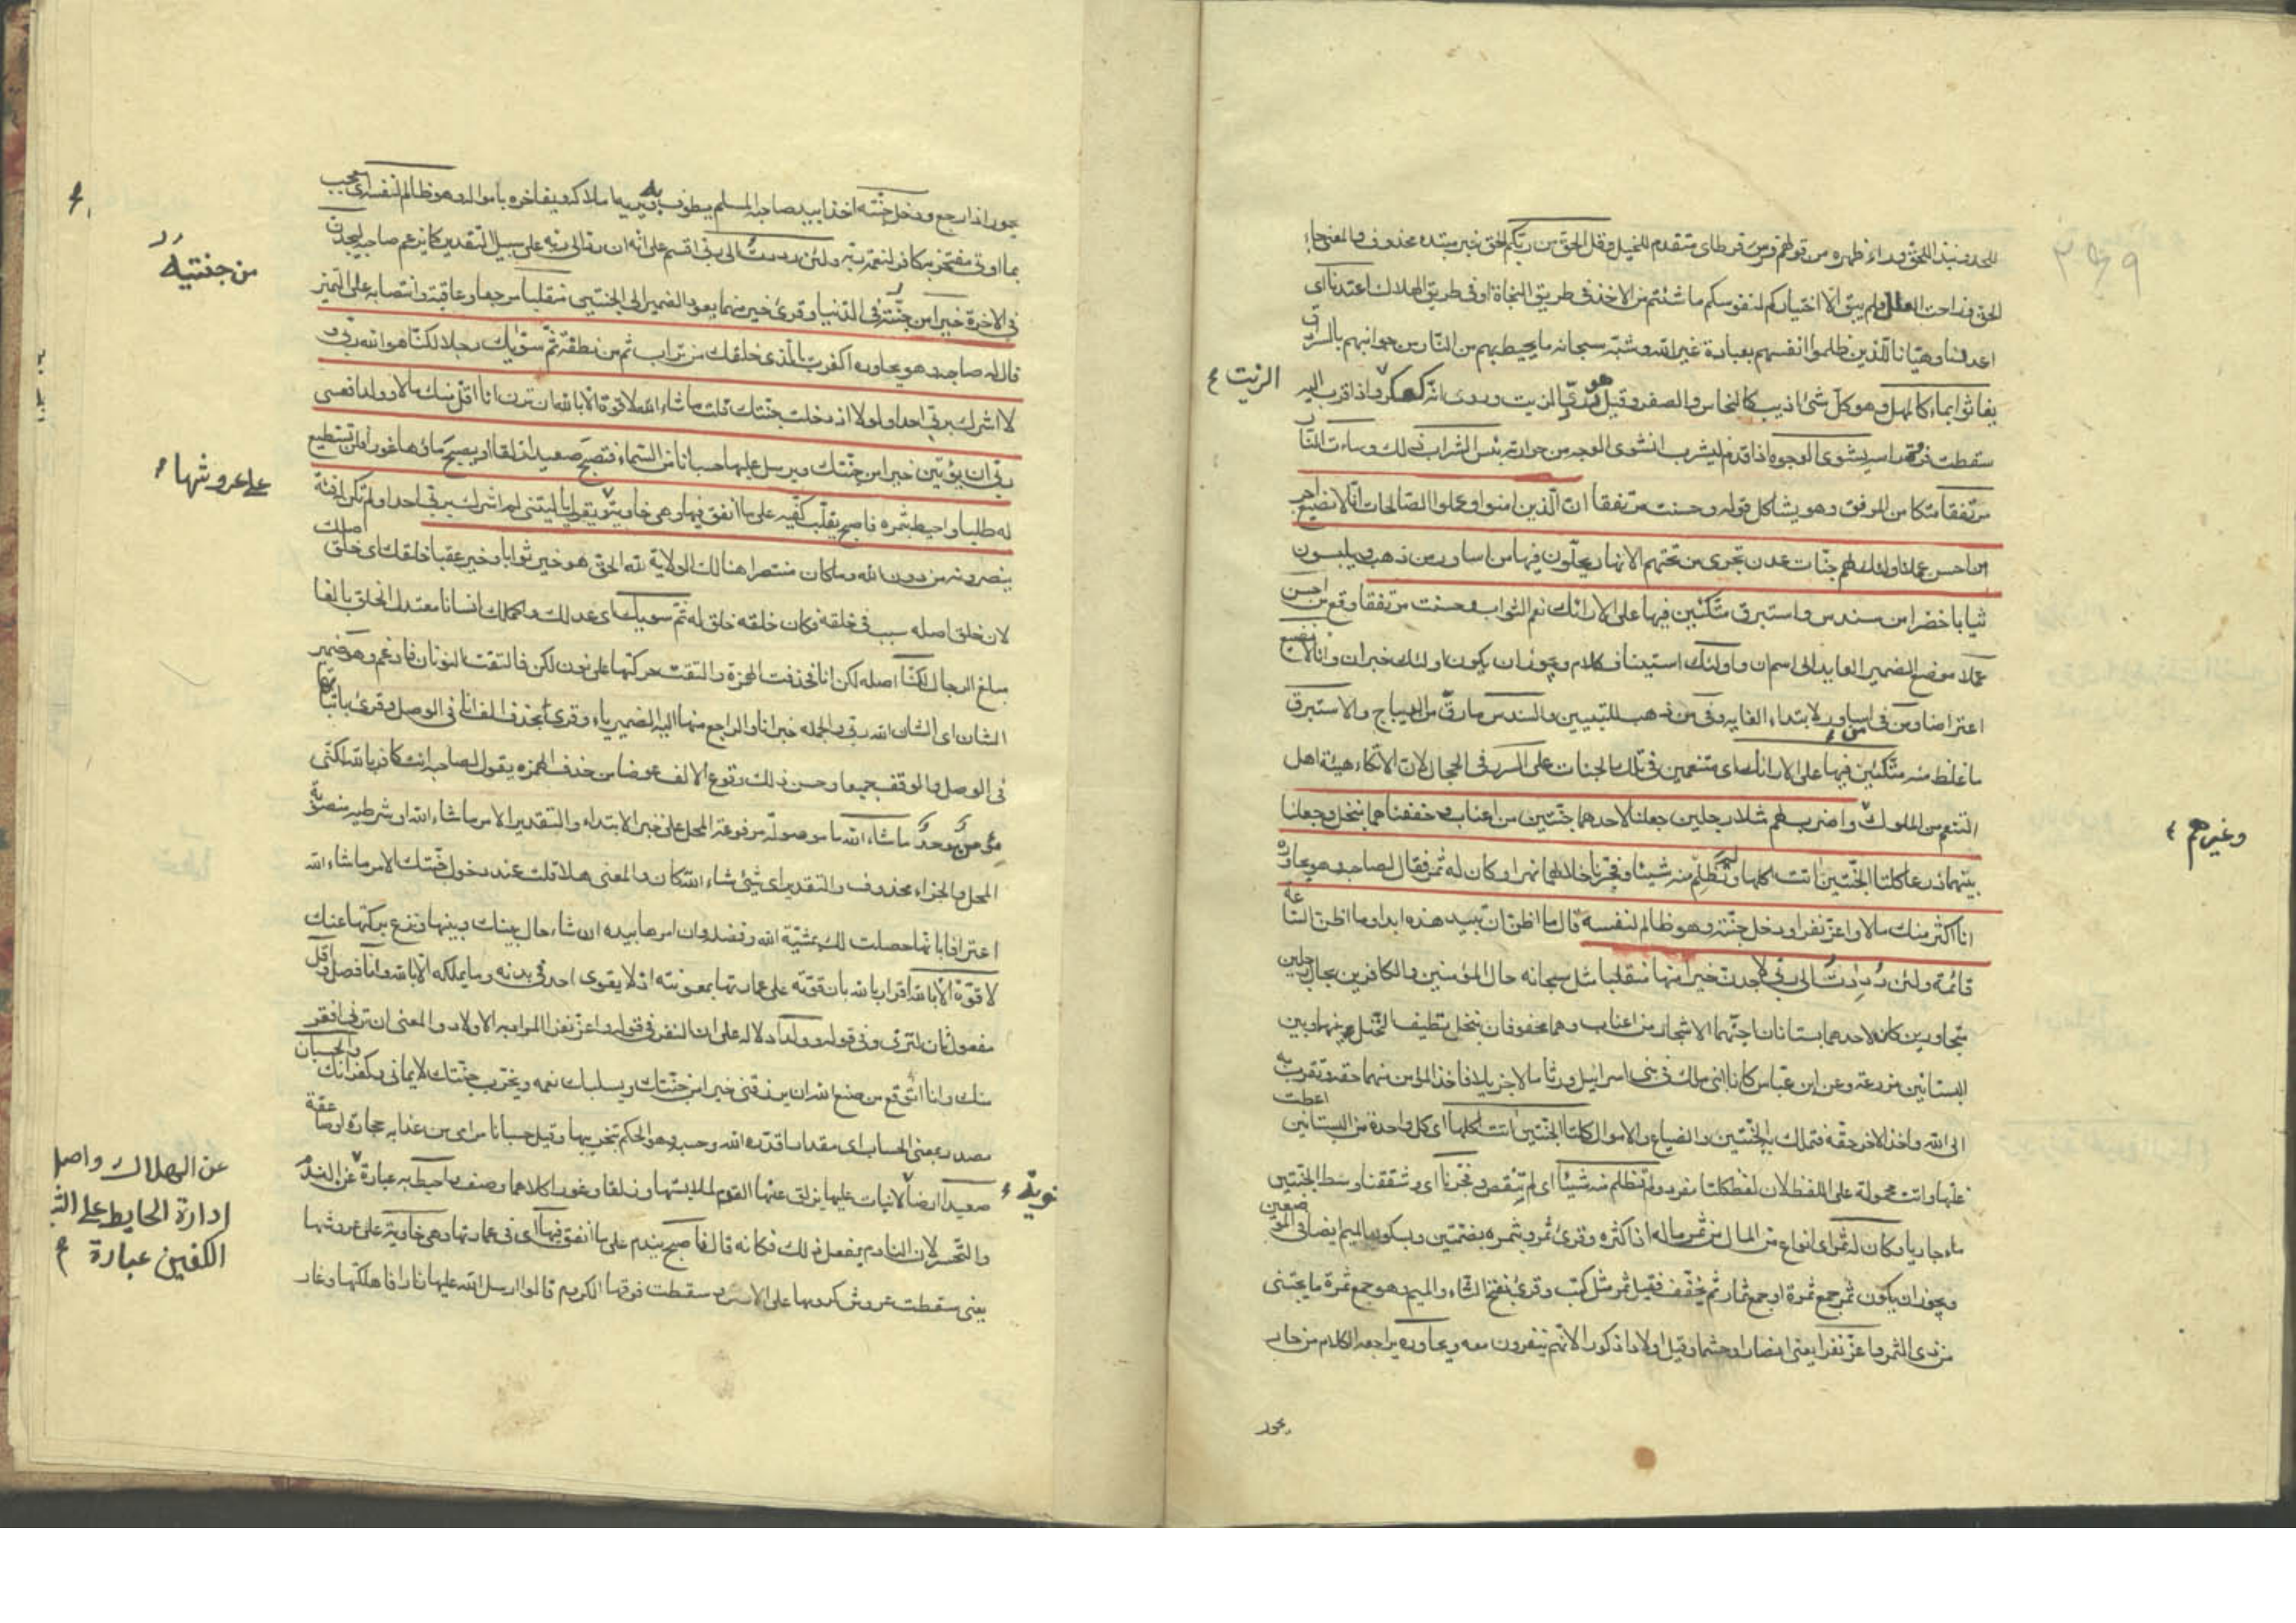 للحد ونبذ للحق وراء ظهره من قولهم فرس فرط اى متقدم للخيل وقل الحق من ربكم الحق خبر مبتدء محذوف والمعنى جاء
الحق وزاحت العلل ولم يبق الا اختياركم لنفوسكم ما شئتم من الاخذ فى طريق النجاة او فى طريق الهلاك اعتدنا اى
اعددنا وهيّانا للذين ظلموا انفسهم بعبادة غير الله وشبّه سبحانه ما يحيط بهم من النار من جوانبهم بالسرادق
يغاثوا بماء كالمهل وهو كل شئ اذيب كالنحاس والصفر وقيل هو دردى الزيت وروى انه كعكر الزيت ء فاذا قرب اليه
سقطت فروة راسه يشوى الوجوه اذا قدم ليشرب انشوى الوجه من حرارته بئس الشراب ذلك وساءت النار
مرتفقا متكا من المرفق وهو يشاكل قوله وحسنت مرتفقا ان الذين امنوا وعملوا الصالحات انا لا نضيع اجر
من احسن عملا اولئك لهم جنات عدن تجرى من تحتهم الانهار يحلون فيها من اساور من ذهب ويلبسون
ثيابا خضرا من سندس واستبرق متكئين فيها على الارائك نعم الثواب وحسنت مرتفقا وقع من احسن
عملا موضع الضمير العايد الى اسم ان واولئك استيناف كلام ويجوز ان يكون اولئك خبر ان وانا لا نضيع
اعتراضا ومن فى من اساور لابتداء الغايه وفى من ذهب للتبيين والسندس ما رق من الديباج والاستبرق
ما غلظ منه متكئين فيها على الارائك اى متنعمين فى تلك الجنات على السرر فى الحجال لان الاتكاء هيئة اهل
التنعم من الملوك وغيرهم ء واضرب لهم مثلا رجلين جعلنا لاحدهما جنتين من اعناب وحففناهما بنخل وجعلنا
بينهما زرعا كلتا الجنتين اتت اكلها ولم تظلم منه شيئا وفجرنا خلالهما نهرا وكان له ثمر فقال لصاحبه وهو يحاوره
انا اكثر منك مالا واعز نفرا ودخل جنته وهو ظالم لنفسه قال ما اظن ان تبيد هذه ابدا وما اظن الساعة
قائمة ولئن رددت الى ربى لاجدن خيرا منها منقلبا مثل سبحانه حال المؤمنين والكافرين بحال رجلين
متجاورين كان لاحدهما بستانان اجنهما الاشجار من اعناب وهما محفوفان بنخل تطيف النخل بهما وبين
البستانين مزرعة وعن ابن عباس كانا ابنى ملك فى بنى اسرائيل ورثا مالا جزيلا فاخذ المؤمن منهما حقه وتقرب به
الى الله واخذ الاخر حقه فتملك به الجنتين والضياع والاموال كلتا الجنتين اتت اكلها اى كل واحدة من البستانين اعطت
غلتها واتت محمولة على اللفظ لان لفظ كلتا مفرد ولم تظلم منه شيئا اى لم تنقص وفجرنا اى وشققنا وسط الجنتين
ماء جاريا وكان له ثمر اى انواع من المال من ثمر ماله اذا كثره وقرئ ثمر وبثمره بضمتين وبسكون الميم ايضا فى الموضعين
ويجوز ان يكون ثمر جمع ثمرة او جمع ثمار ثم يخفف فقيل ثمر مثل كتب وقرئ بفتح الثاء والميم وهو جمع ثمرة ما يجتنى
من ذى الثمر واعز نفرا يعنى انصارا وحشما وقيل اولادا ذكورا لانهم ينفرون معه ويحاوره يراجعه الكلام من حار
يحور
يحور اذا رجع ودخل جنته اخذا بيد صاحبه المسلم يطوف به ويريه ما ملاكه ويفاخره بامواله وهو ظالم لنفسه اى معجب
بما اوتى مفتخر به كافر لنعمة ربه ولئن رددت الى ربى اقسم على انه ان رد الى ربه على سبيل التقدير كما يزعم صاحبه ليجدن
فى الاخرة خيرا من جنته فى الدنيا وقرئ خير منهما يعود الضمير الى الجنتين منقلبا مرجعا وعاقبة وانتصابه على التميز
قال له صاحبه وهو يحاوره اكفرت بالذى خلقك من تراب ثم من نطفة ثم سوّيك رجلا لكنا هو الله ربى و
لا اشرك بربى احدا ولولا اذ دخلت جنتك قلت ما شاء الله لا قوة الا بالله ان ترن انا اقل منك مالا وولدا فعسى
ربى ان يؤتين خيرا من جنتك ويرسل عليها حسبانا من السماء فتصبح صعيدا زلقا او يصبح ماؤها غورا فلن تستطيع
له طلبا واحيط بثمره فاصبح يقلب كفيه على ما انفق فيها وهى خاوية على عروشها ء ويقول يا ليتنى لم اشرك بربى احدا ولم تكن له فئة
ينصرونه من دون الله وما كان منتصرا هنالك الولاية لله الحق هو خير ثوابا وخير عقبا خلقك اى خلق اصلك
لان خلق اصله سبب فى خلقه فكان خلقه خلق له ثم سويك اى عدلك واكملك انسانا معتدل الخلق بالغا
مبلغ الرجال لكنا اصله لكن انا فحذفت الهمزة والتقت حركتها على نون لكن فالتقت النونان فادغم وهو ضمير
الشان اى الشان الله ربى والجمله خبر انا والراجع منها اليه الضمير ياء وقرئ بحذف الف انا فى الوصل وقرئ باثباتها
فى الوصل والوقف جميعا وحسن ذلك وقوع الالف عوضا من حذف الهمزه يقول لصاحبه انت كافر بالله لكنى
مؤمن موحد ما شاء الله ما موصولة مرفوعة المحل على خبر الابتداء والتقدير الامر ما شاء الله او شرطيه منصوبة
المحل والجزاء محذوف والتقدير اى شئ شاء الله كان والمعنى هلا قلت عند دخول جنتك الامر ما شاء الله
اعترافا بانها حصلت لك بمشية الله وفضله وان امرها بيده ان شاء حال بينك وبينها ونزع بركتها عنك
لا قوة الا بالله اقرارا بالله بان قوته على عمارتها بمعونته اذ لا يقوى احد فى بدنه وما يملكه الا بالله وانا فصل واقل
مفعول ثان لترى وفى قوله وولدا دلاله على ان النفر فى قوله واعز نفرا المراد به الاولاد والمعنى ان ترنى افقر
منك وانا اتوقع من صنع الله ان يرزقنى خيرا من جنتك ويسلبك نعمه ويخرب جنتك لايمانى وكفرانك والحسبان
مصدر بمعنى الحساب اى مقدارا قدره الله وحسبه وهو الحكم بتخريبها وقيل حسبانا مرامى من عذابه حجارة او صاعقة
صعيدا ارضا لا نبات عليها يزلق عنها القدم لملابستها وزلقا وغورا كلاهما وصف واحيط به عبارة عن الهلاك واصله ادارة الحايط على الشئ
والتحسر لان النادم يفعل ذلك فكانه قال فاصبح يندم على ما انفق فيها اى فى عمارتها وهى خاوية على عروشها
يعنى سقطت عروش كرومها على الارض وسقطت فوقها الكروم قالوا ارسل الله عليها نارا فاهلكتها وغار
من جنتيه
على عروشها
عن الهلاك واصل
ادارة الحايط على الش
الكفين عبارة ء